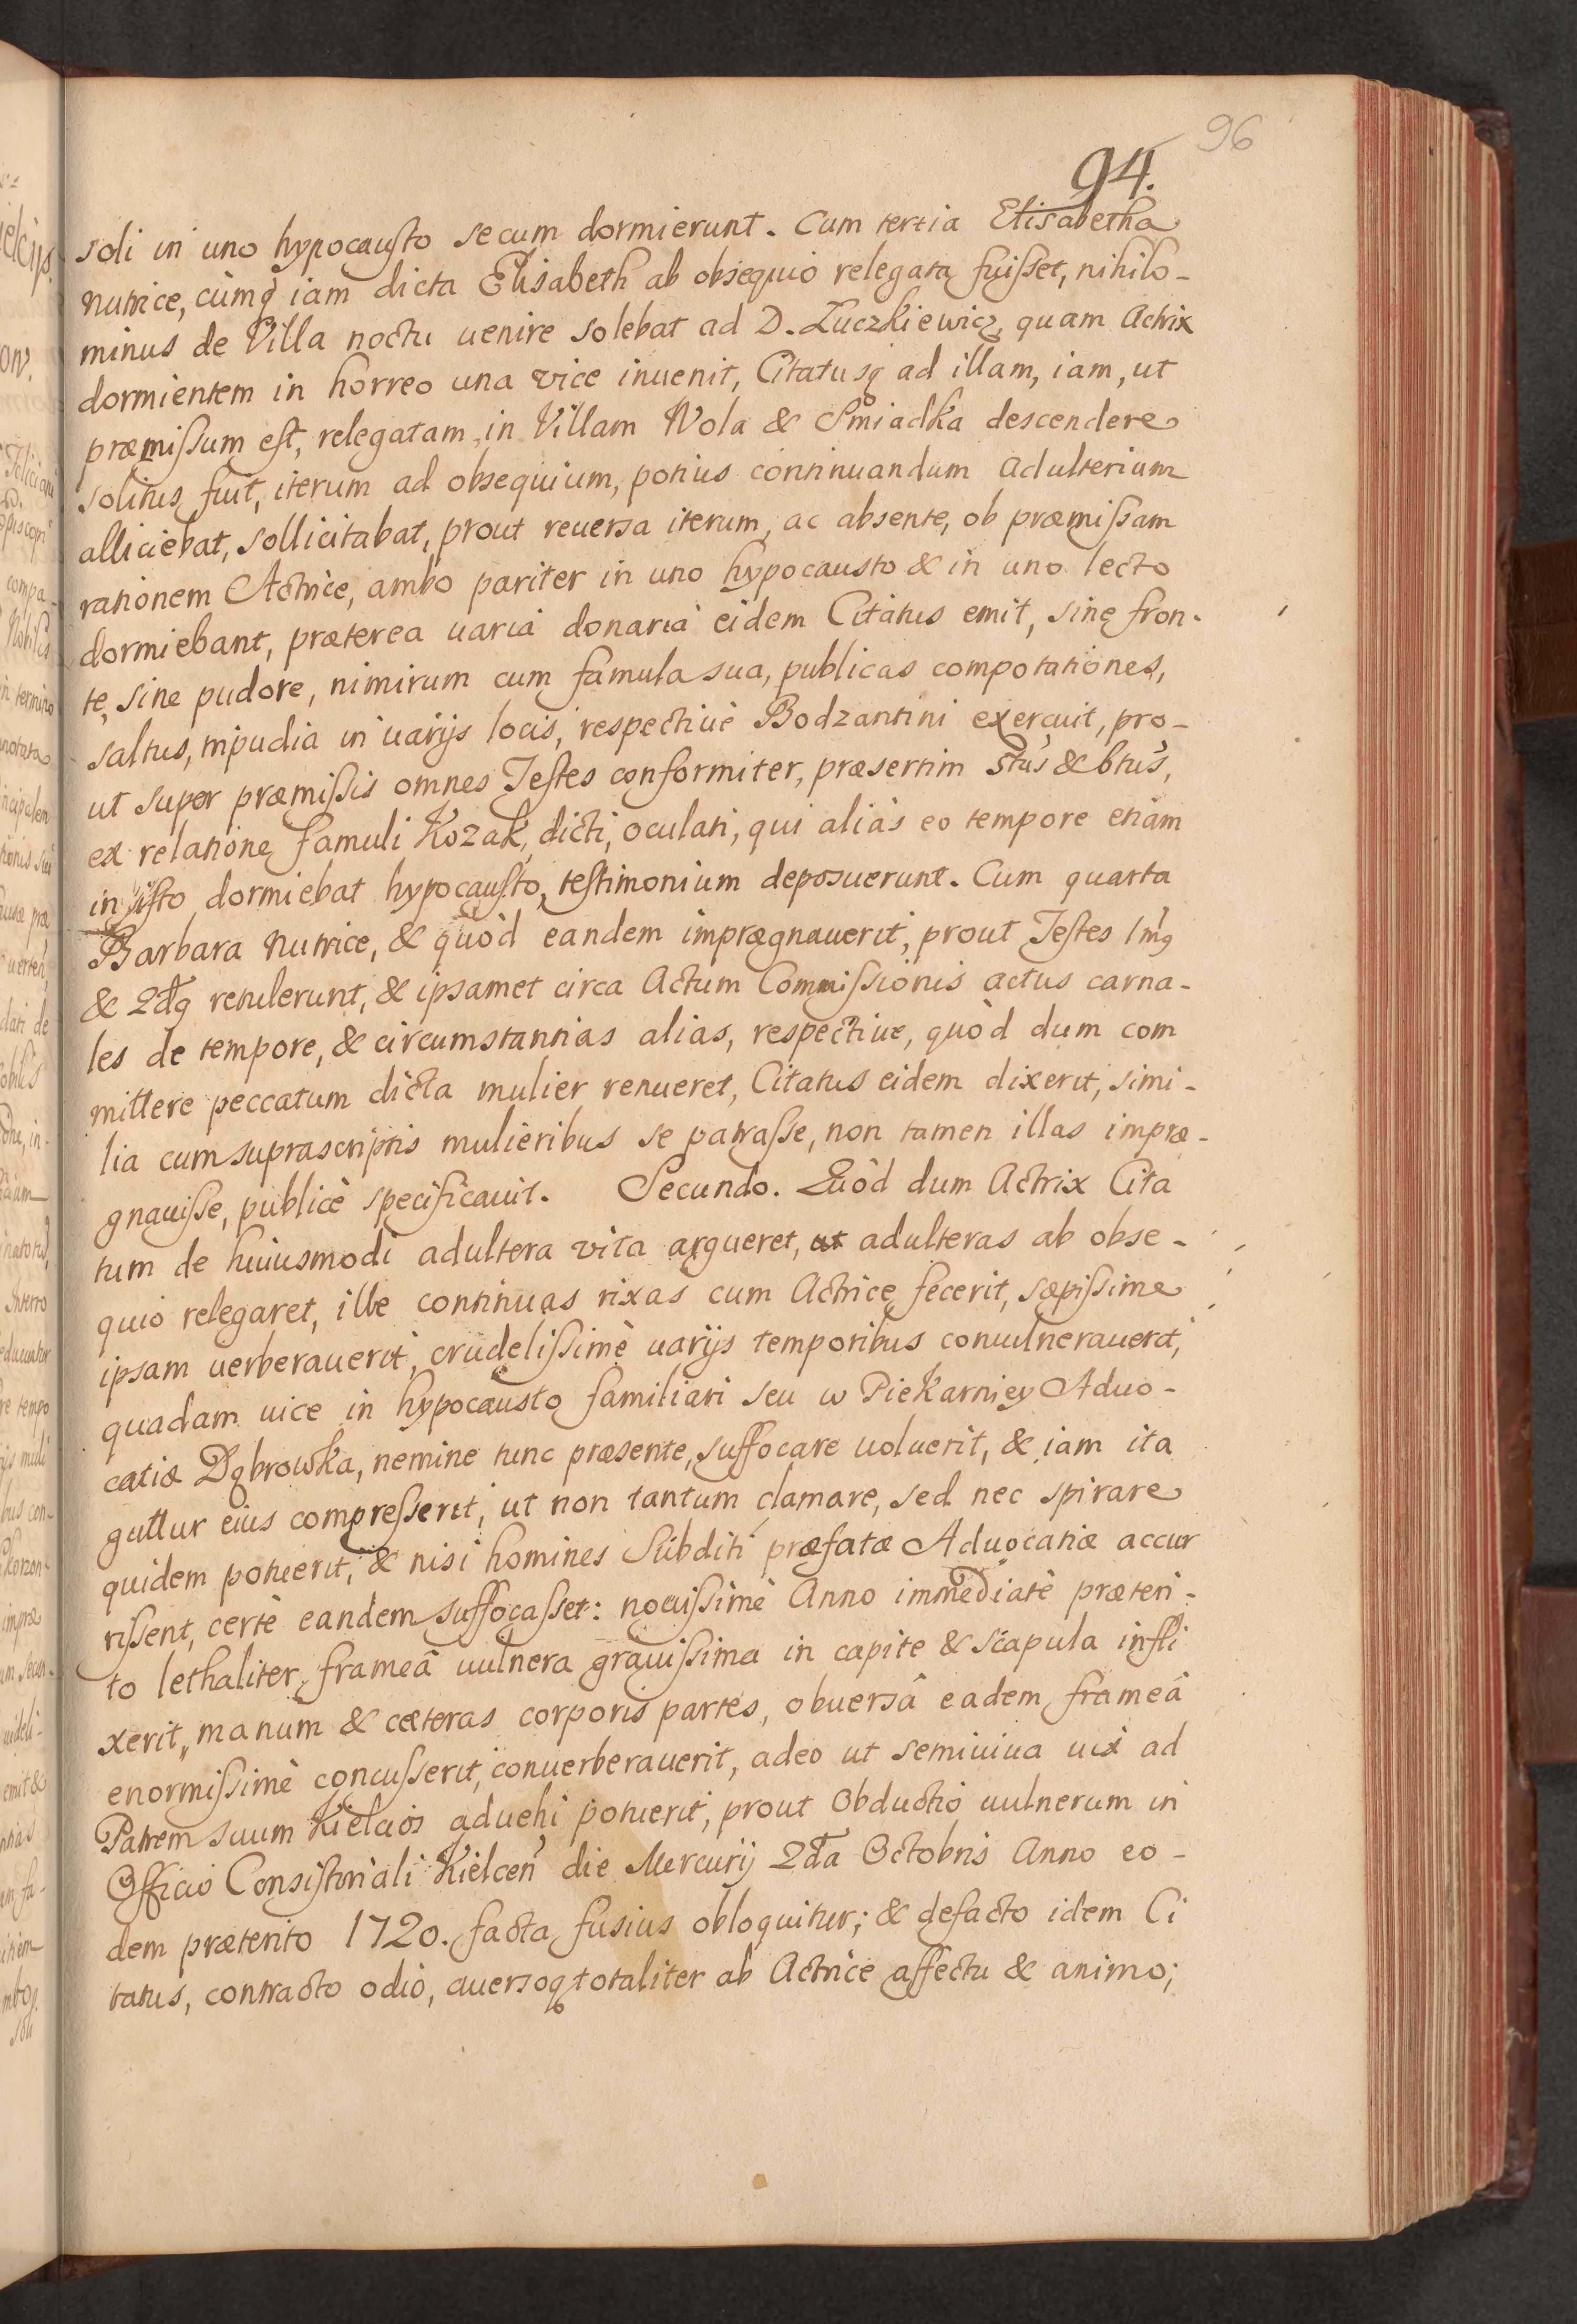 96
94.
soli in uno hypocausto secum dormierunt. Cum tertia Elisabetha
nutrice, cùmq; iam dicta Elisabeth ab obsequio relegata fuisset, nihilo-
minus de Villa noctu uenire solebat ad D. Łuczkiewicz, quam Actrix
dormientem in horreo una vice inuenit, Citatusq; ad illam, iam, ut
præmissum est, relegatam in Villam Wola & Smiadka descendere
solitus fuit, iterum ad obsequium, potius continuandum adulterium
alliciebat, sollicitabat, prout reuersa iterum, ac absente, ob præmissam
rationem Actrice, ambo pariter in uno hypocausto & in uno lecto
dormiebant, præterea uaria donaria eidem Citatus emit, sine fron-
te, sine pudore, nimirum cum famula sua, publicas compotationes,
saltus, tripudia in uarijs locis, respectiuè Bodzantini exercuit, pro-
ut super præmissis omnes Testes conformiter, præsertim 5tus & 6tus,
ex relatione famuli Kozak dicti, oculati, qui aliàs eo tempore etiam
in isto dormiebat hypocausto, testimonium deposuerunt. Cum quarta
Barbara nutrice, & quòd eandem imprægnauerit, prout Testes 1mq
& 2dq retulerunt, & ipsamet circa Actum Commissionis actus carna-
les de tempore, & circumstantias alias, respectiue, quòd dum com
mittere peccatum dicta mulier renueret, Citatus eidem dixerit, simi-
lia cum suprascriptis mulieribus se patrasse, non tamen illas impræ-
gnauisse, publicè specificauit. Secundo. Quòd dum Actrix Cita
tum de huiusmodi adultera vita argueret, ut adulteras ab obse-
quio relegaret, ille continuas rixas cum Actrice fecerit, sæpissime
ipsam uerberauerit, crudelissimè uarijs temporibus conuulnerauerit,
quadam uice in hypocausto familiari seu w Piekarniey Aduo-
catiæ Dąbrowka, nemine tunc præsente, suffocare uoluerit, & iam ita
guttur eius compresserit, ut non tantum clamare, sed nec spirare
quidem potuerit, & nisi homines Subditi præfatæ Aduocatiæ accur
rissent, certè eandem suffocasset: nouissimè Anno immediatè præteri-
to lethaliter frameâ uulnera grauissima in capite & scapula infli
xerit, manum & cæteras corporis partes, obuersâ eadem frameâ
enormissimè concusserit, conuerberauerit, adeo ut semiuiua uix ad
Patrem suum Kielcios aduehi potuerit, prout Obductio uulnerum in
Officio Consistoriali Kielcen̄ die Mercurij 2da Octobris Anno eo-
dem præterito 1720. facta fusius obloquitur; & defacto idem Ci
tatus, contracto odio, auersoq; totaliter ab Actrice affectu & animo;